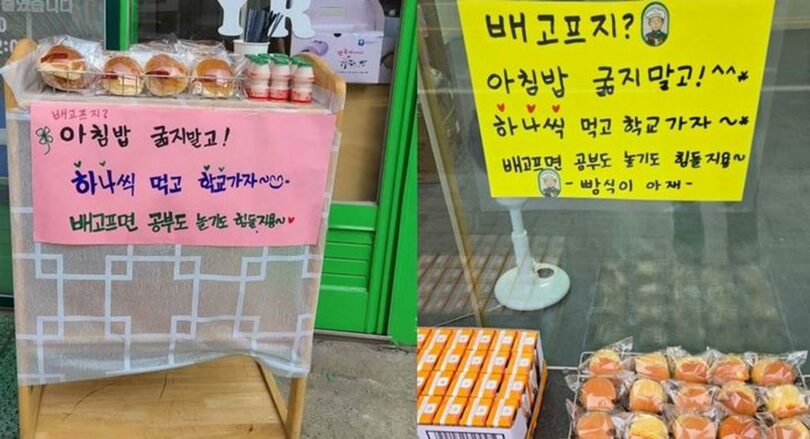 배고프지?
아침밥 굶지말고!
하나씩 먹고 학교가자~
배고프면 공부도 놀기도 힘들지용~
배고프지?
아침밥 굶지말고!^^*
하나씩 먹고 학교가자~*
배고프면 공부도 놀기도 힘들지용~
- 빵식이 아재 -